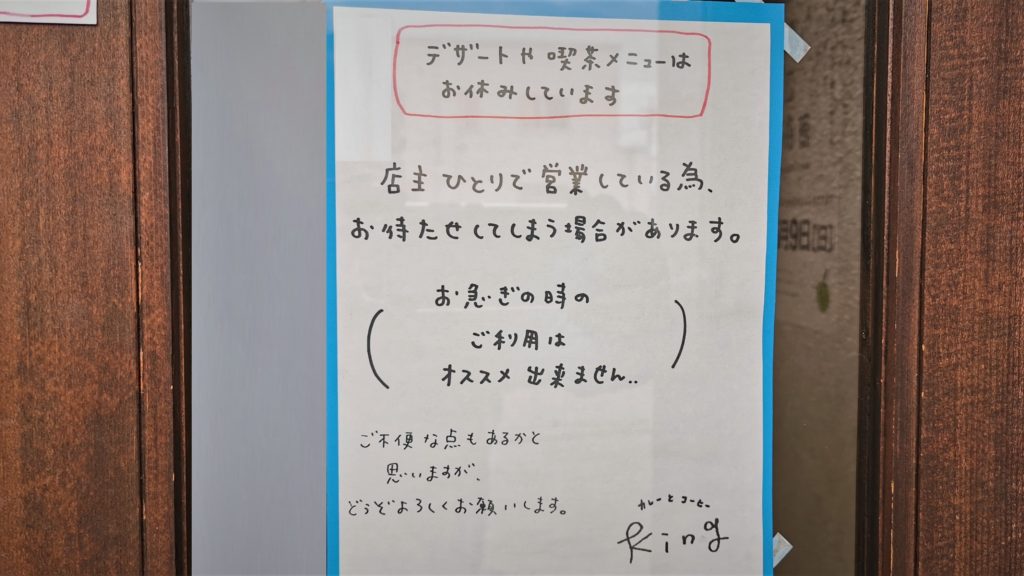 デザートや喫茶メニューは
お休みしています
店主ひとりで営業している為、
お待たせしてしまう場合があります。
お急ぎの時の
ご利用は
オススメ出来ません..
ご不便な点もあるかと
思いますが、
どうぞよろしくお願いします。
カレーとコーヒー
King